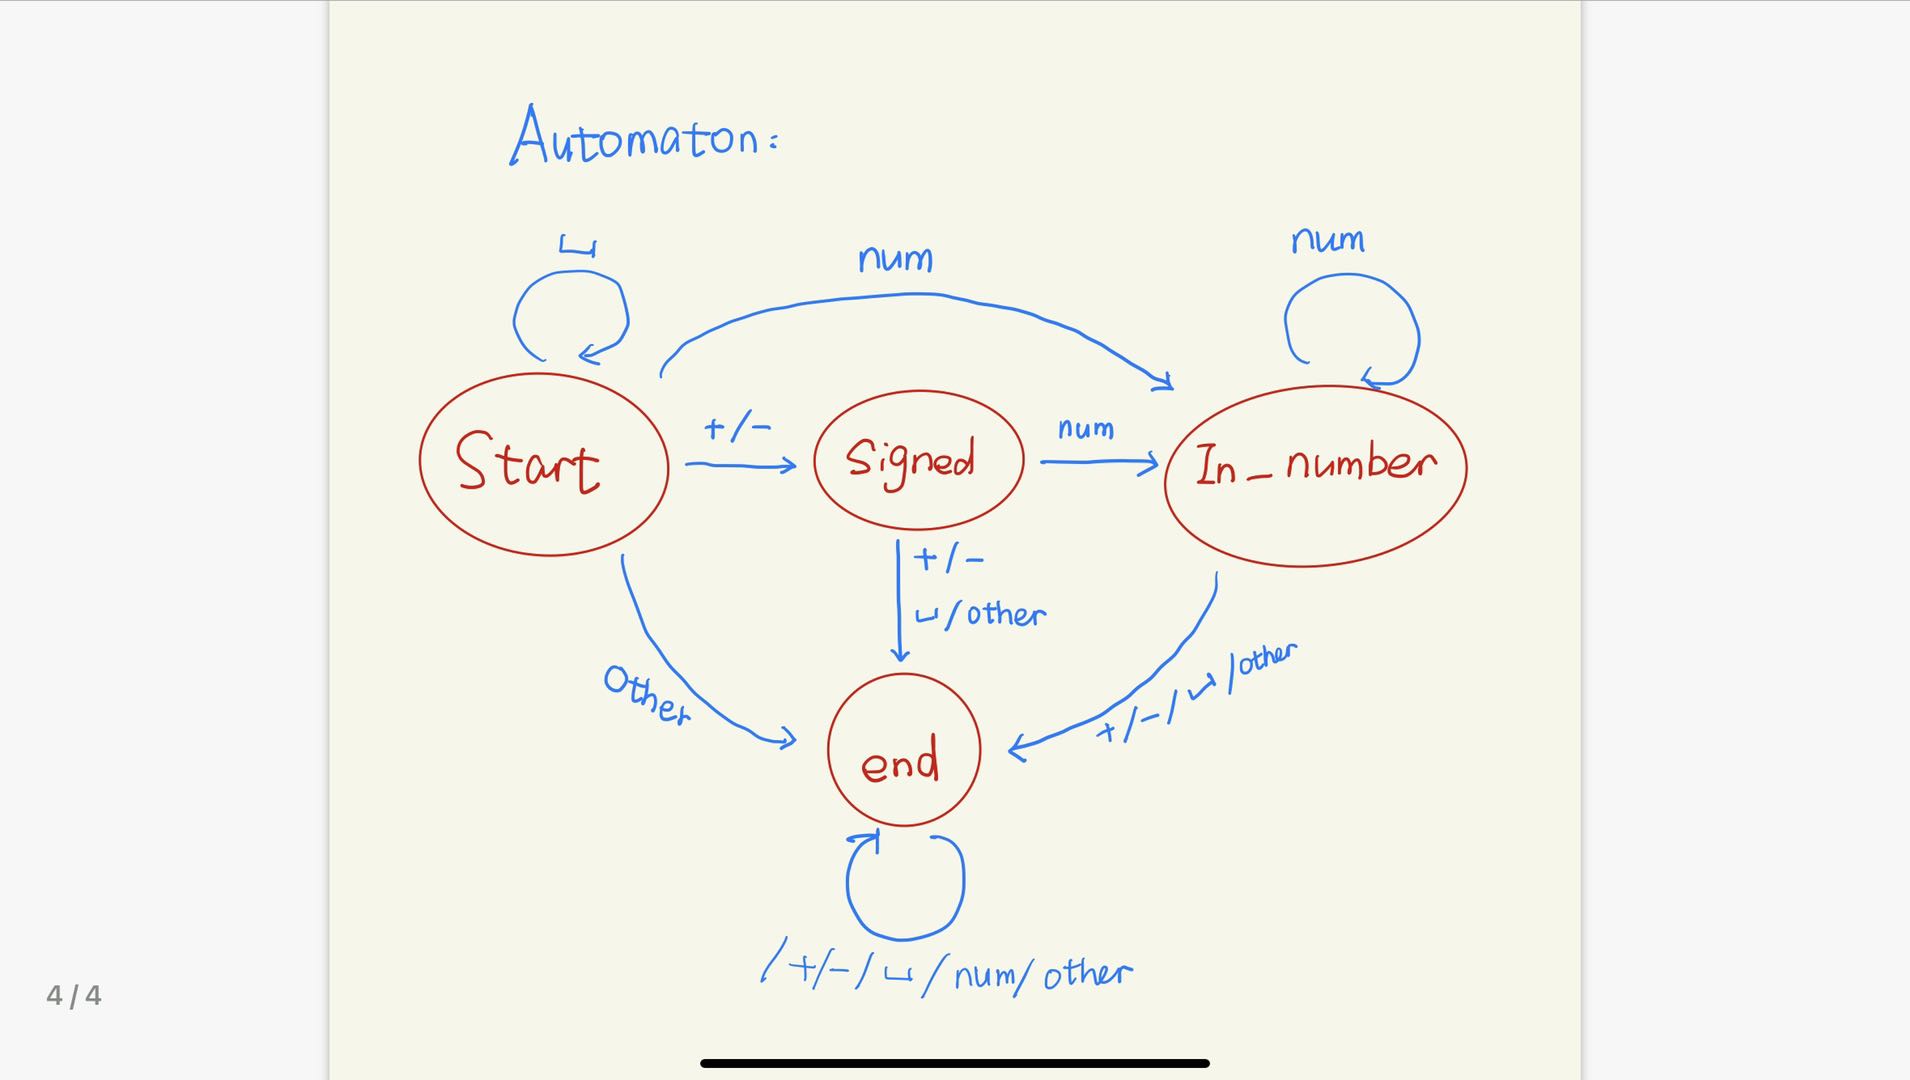 Automaton:
␣
num
num
+/-
num
Start
Signed
In_number
+/-
␣/other
Other
+/-/␣/other
end
/+/-/␣/num/other
4/4